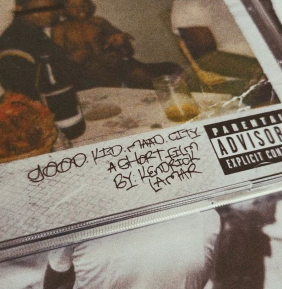 good kid, m.A.A.d city
A SHORT FILM
BY: KENDRICK
LAMAR
PARENTAL
ADVISOR
EXPLICIT CONT